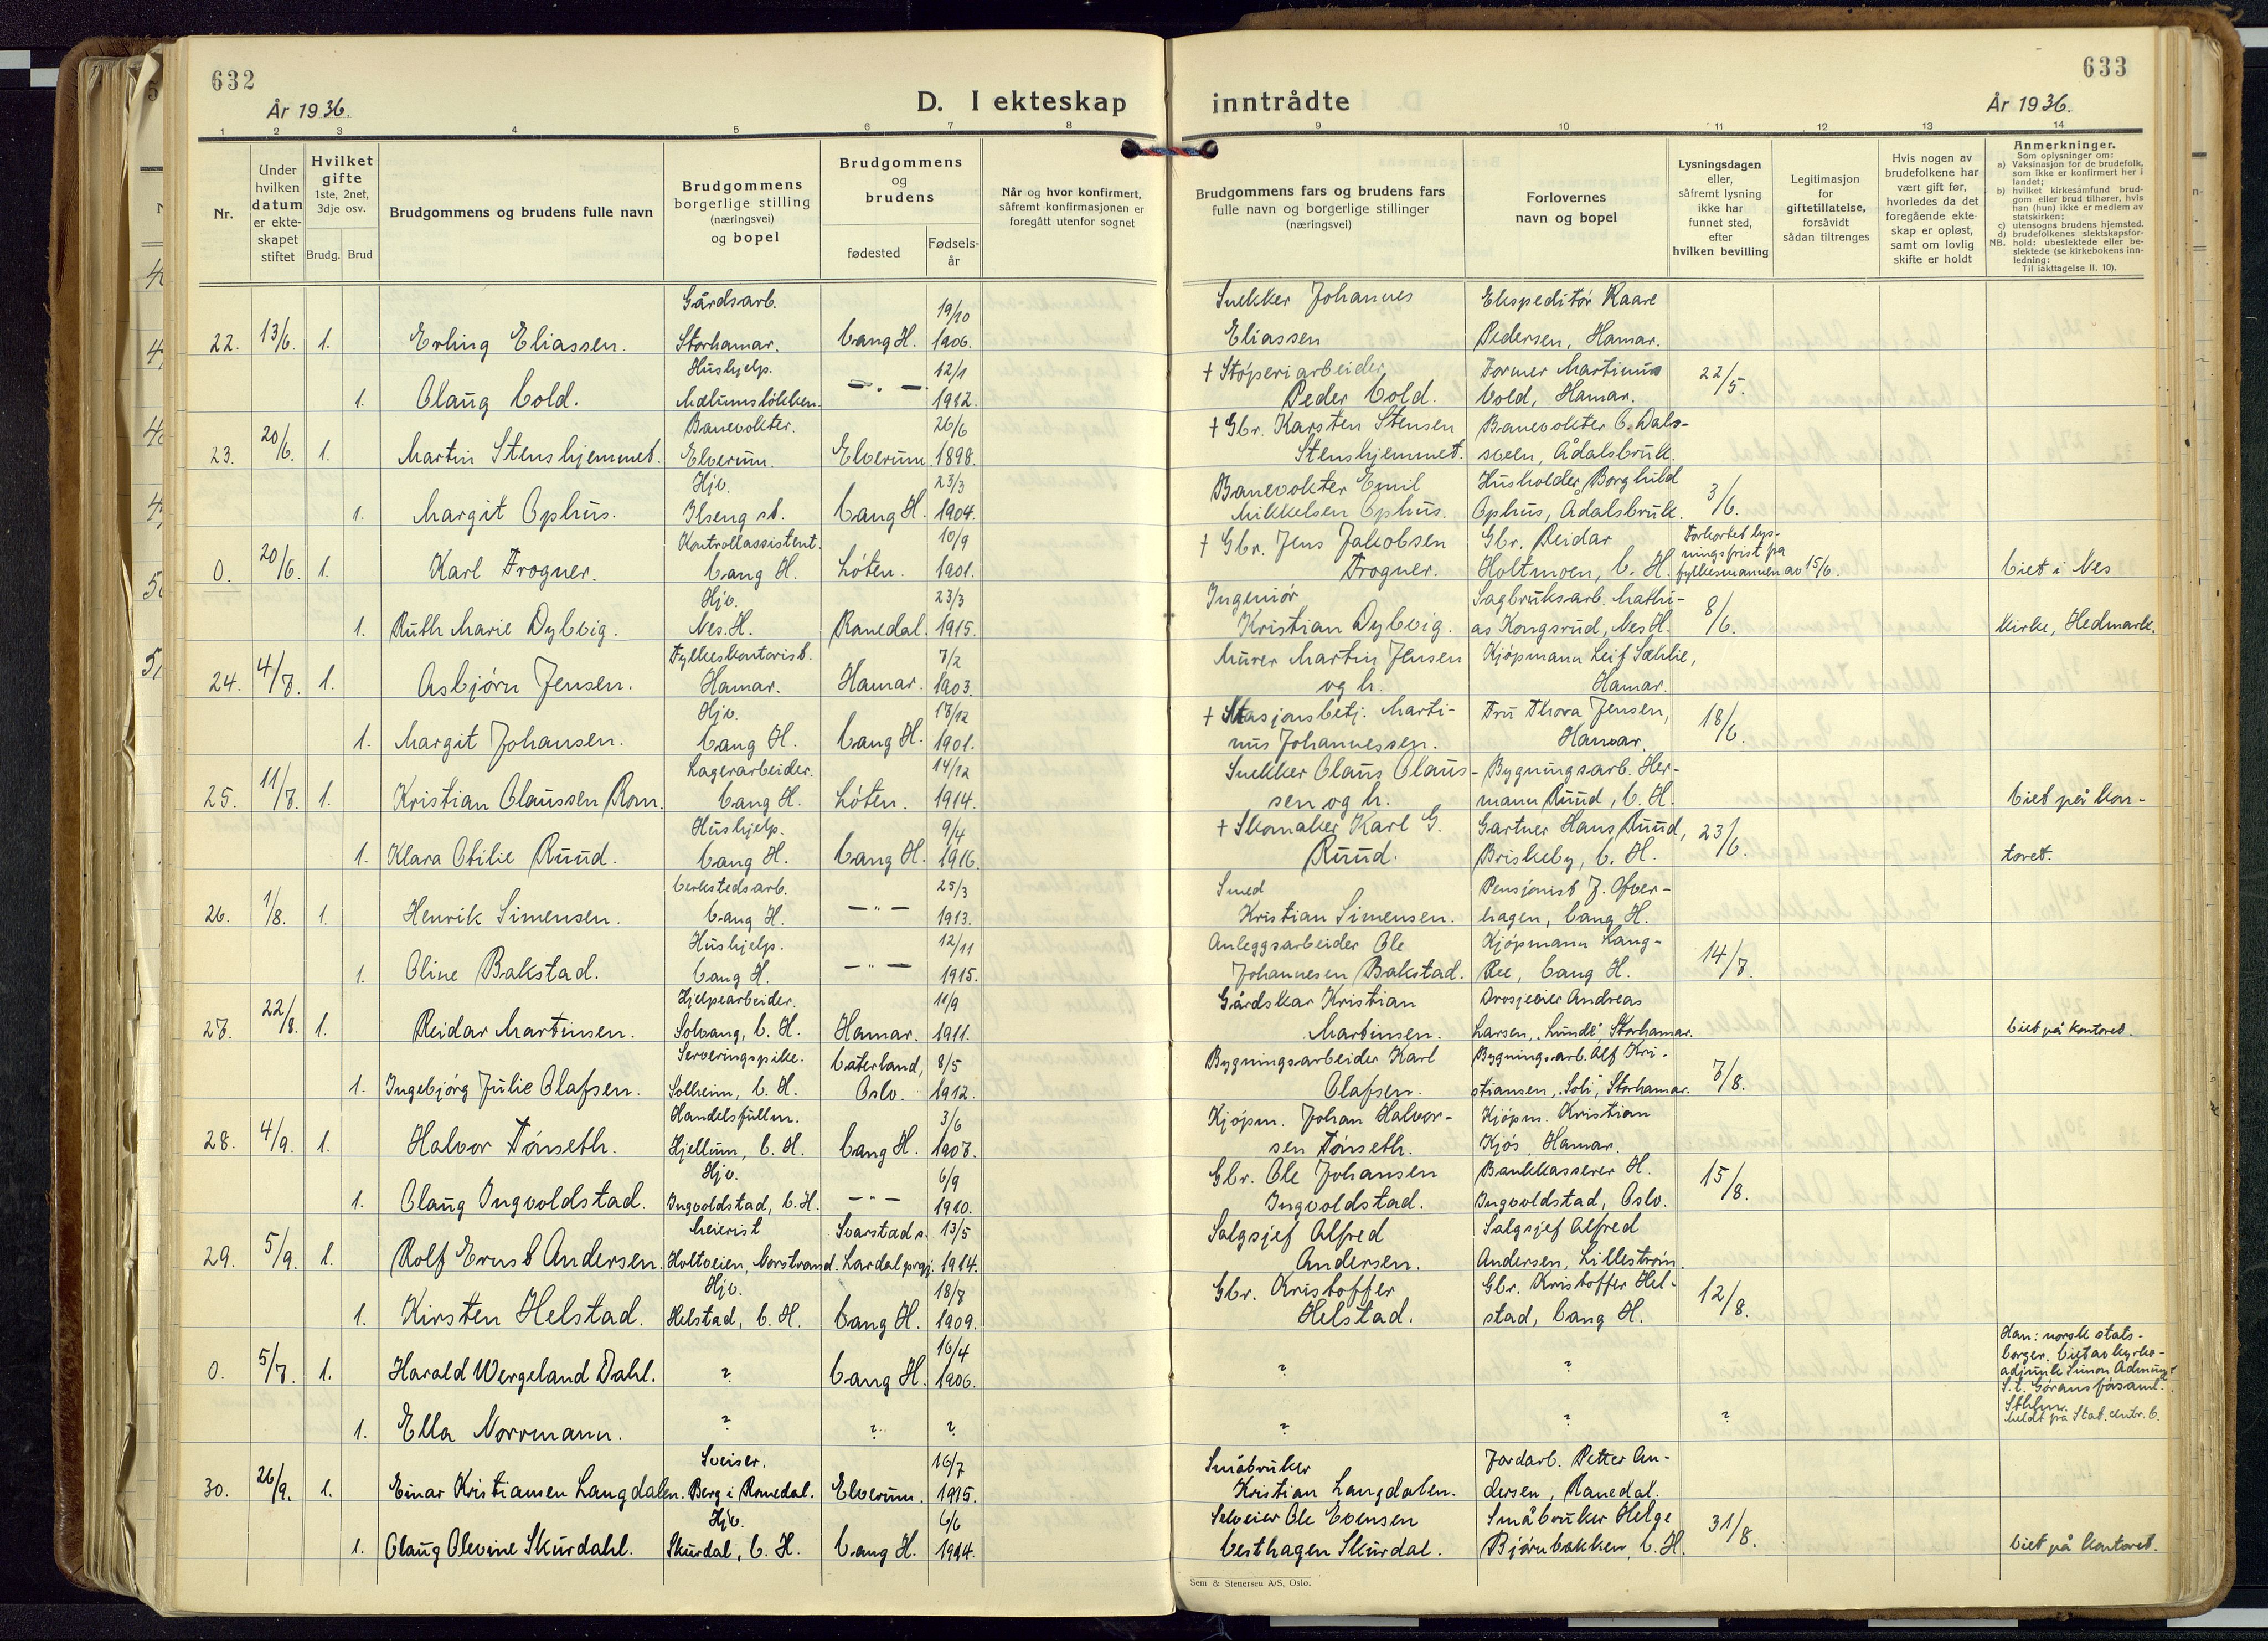 632
År 1936.
D. I ekteskap
1 2 3 4 5 6 7 8
Nr.
Under hvilken datum er ekteskapet stiftet
Hvilket gifte
1ste, 2net, 3dje osv.
Brudg. Brud
Brudgommens og brudens fulle navn
Brudgommens borgerlige stilling (næringsvei) og bopel
Brudgommens og brudens
fødested
Fødsels-år
Når og hvor konfirmert, såfremt konfirmasjonen er foregått utenfor sognet
633
inntrådte
År 1936.
9 10 11 12 13 14
Brudgommens fars og brudens fars fulle navn og borgerlige stillinger (næringsvei)
Forlovernes navn og bopel
Lysningsdagen eller, såfremt lysning ikke har funnet sted, efter hvilken bevilling
Legitimasjon for giftetillatelse, forsåvidt sådan tiltrenges
Hvis nogen av brudefolkene har vært gift før, hvorledes da det foregående ekteskap er opløst, samt om lovlig skifte er holdt
Anmerkninger.
Som oplysninger om:
a) Vaksinasjon for de brudefolk, som ikke er konfirmert her i landet;
b) hvilket kirkesamfund brudgom eller brud tilhører, hvis han (hun) ikke er medlem av statskirken;
c) utensogns brudens hjemsted.
d) brudefolkenes slektskapsforhold: ubeslektede eller beslektede (se kirkebokens innledning:
NB.
Til iakttagelse II. 10).
22. 13/6. 1. Erling Eliassen. Gårdsarb. Storhamar. Vang H. 19/10 1906. Snekker Johannes Eliassen Ekspeditør Kaare Pedersen, Hamar.
1. Olaug Vold. Hushjelp. Mælumsløkken. —"— 12/1 1912. † Støperiarbeider Peder Vold. Former Martinus Vold, Hamar. 22/5.
23. 20/6. 1. Martin Stenshjemmet. Banevokter. Elverum. Elverum. 26/6 1898. † Gbr. Karsten Stensen Stenshjemmet. Banevokter O. Dalsveen, Ådalsbruk.
1. Margit Ophus. Hjv. Ilseng st. Vang H. 23/3 1904. Banevokter Emil Mikkelsen Ophus. Husholder Borghild Ophus, Ådalsbruk. 3/6.
0. 20/6. 1. Karl Frogner. Kontrollassistent. Vang H. Løten. 10/9 1901. † Gbr. Jens Jakobsen Frogner. Gbr. Reidar Holtmoen, V. H. Forkortet lysningsfrist på fylkesmannen av 15/6. Viet i Nes
1. Ruth Marie Dybvig. Hjv. Nes. H. Romedal. 23/3 1915. Ingeniør Kristian Dybvig. Sagbruksarb. Mathias Kongsrud, Nes H. 8/6. kirke, Hedmark.
24. 4/7. 1. Asbjørn Jensen. Fylkeskontorist. Hamar. Hamar. 7/2 1903. Murer Martin Jensen og h. Kjøpmann Leif Sæhlie, Hamar.
1. Margit Johansen. Hjv. Vang H. Vang H. 17/12 1901. † Stasjonsbetj. Martinus Johannessen. Fru Thora Jensen, Hamar. 18/6.
25. 11/7. 1. Kristian Olaussen Rom. Lagerarbeider. Vang H. Løten. 14/12 1914. Snekker Olaus Olaussen og h. Bygningsarb. Hermann Ruud, V. H. Viet på kon-
1. Klara Otilie Ruud. Hushjelp. Vang H. Vang H. 9/4 1916. † Skomaker Karl G. Ruud. Gartner Hans Ruud, Briskeby, V. H. 23/6. toret.
26. 1/8. 1. Henrik Simensen. Verkstedsarb. Vang H. —"— 25/3 1913. Smed Kristian Simensen. Pensjonist J. Ofverhagen, Vang H.
1. Oline Bakstad. Hushjelp. Vang H. —"— 12/11 1915. Anleggsarbeider Ole Johannesen Bakstad. Kjøpmann Lang-Ree, Vang H. 14/7.
27. 22/8. 1. Reidar Martinsen. Hjelpearbeider. Solvang, V. H. Hamar. 11/9 1911. Gårdskar Kristian Martinsen. Drosjeeier Andreas Larsen, "Lunde" Storhamar. Viet på kontoret.
1. Ingebjørg Julie Olafsen. Serveringspike. Solheim, V. H. Vaterland, Oslo. 8/5 1912. Bygningsarbeider Karl Olafsen. Bygningsarb. Alf Kristiansen, "Soli", Storhamar. 7/8.
28. 4/9. 1. Halvor Tønseth. Handelsfullm. Hjellum, V. H. Vang H. 3/6 1907. Kjøpm. Johan Halvorsen Tønseth. Kjøpm. Kristian Kjøs, Hamar.
1. Olaug Ingvoldstad. Hjv. Ingvoldstad, V. H. —"— 6/9 1910. Gbr. Ole Johansen Ingvoldstad. Bankkasserer H. Ingvoldstad, Oslo. 15/8.
29. 5/9. 1. Rolf Ernst Andersen. Meierist Holtveien, Norstrand. Svarstad s. Lardal prgj. 13/5 1914. Salgsjef Alfred Andersen. Salgsjef Alfred Andersen, Lillestrøm.
1. Kirsten Helstad. Hjv. Helstad, V. H. Vang H. 18/7 1909. Gbr. Kristoffer Helstad. Gbr. Kristoffer Helstad, Vang H. 12/8.
0. 5/7. 1. Harald Wergeland Dahl. ? Vang H. 16/4 1906. ? ? Han: norsk statsborger. Viet av kyrkoadjunkt Simon S:t Görans församl. Sthlm.
1. Ella Norrmann. ? ? ? ? ? ?
30. 26/9. 1. Einar Kristiansen Langdalen. Sveiser. Berg i Romedal. Elverum. 16/7 1915. Småbruker Kristian Langdalen. Jordarb. Petter Andersen, Romedal.
1. Olaug Olevine Skurdahl. Hjv. Skurdal, V. H. Vang H. 6/6 1914. Selveier Ole Evensen Vesthagen Skurdal. Småbruker Helge Bjørnbakken, V. H. 31/8. Viet på kontoret.
Sem & Stenersen A/S, Oslo.